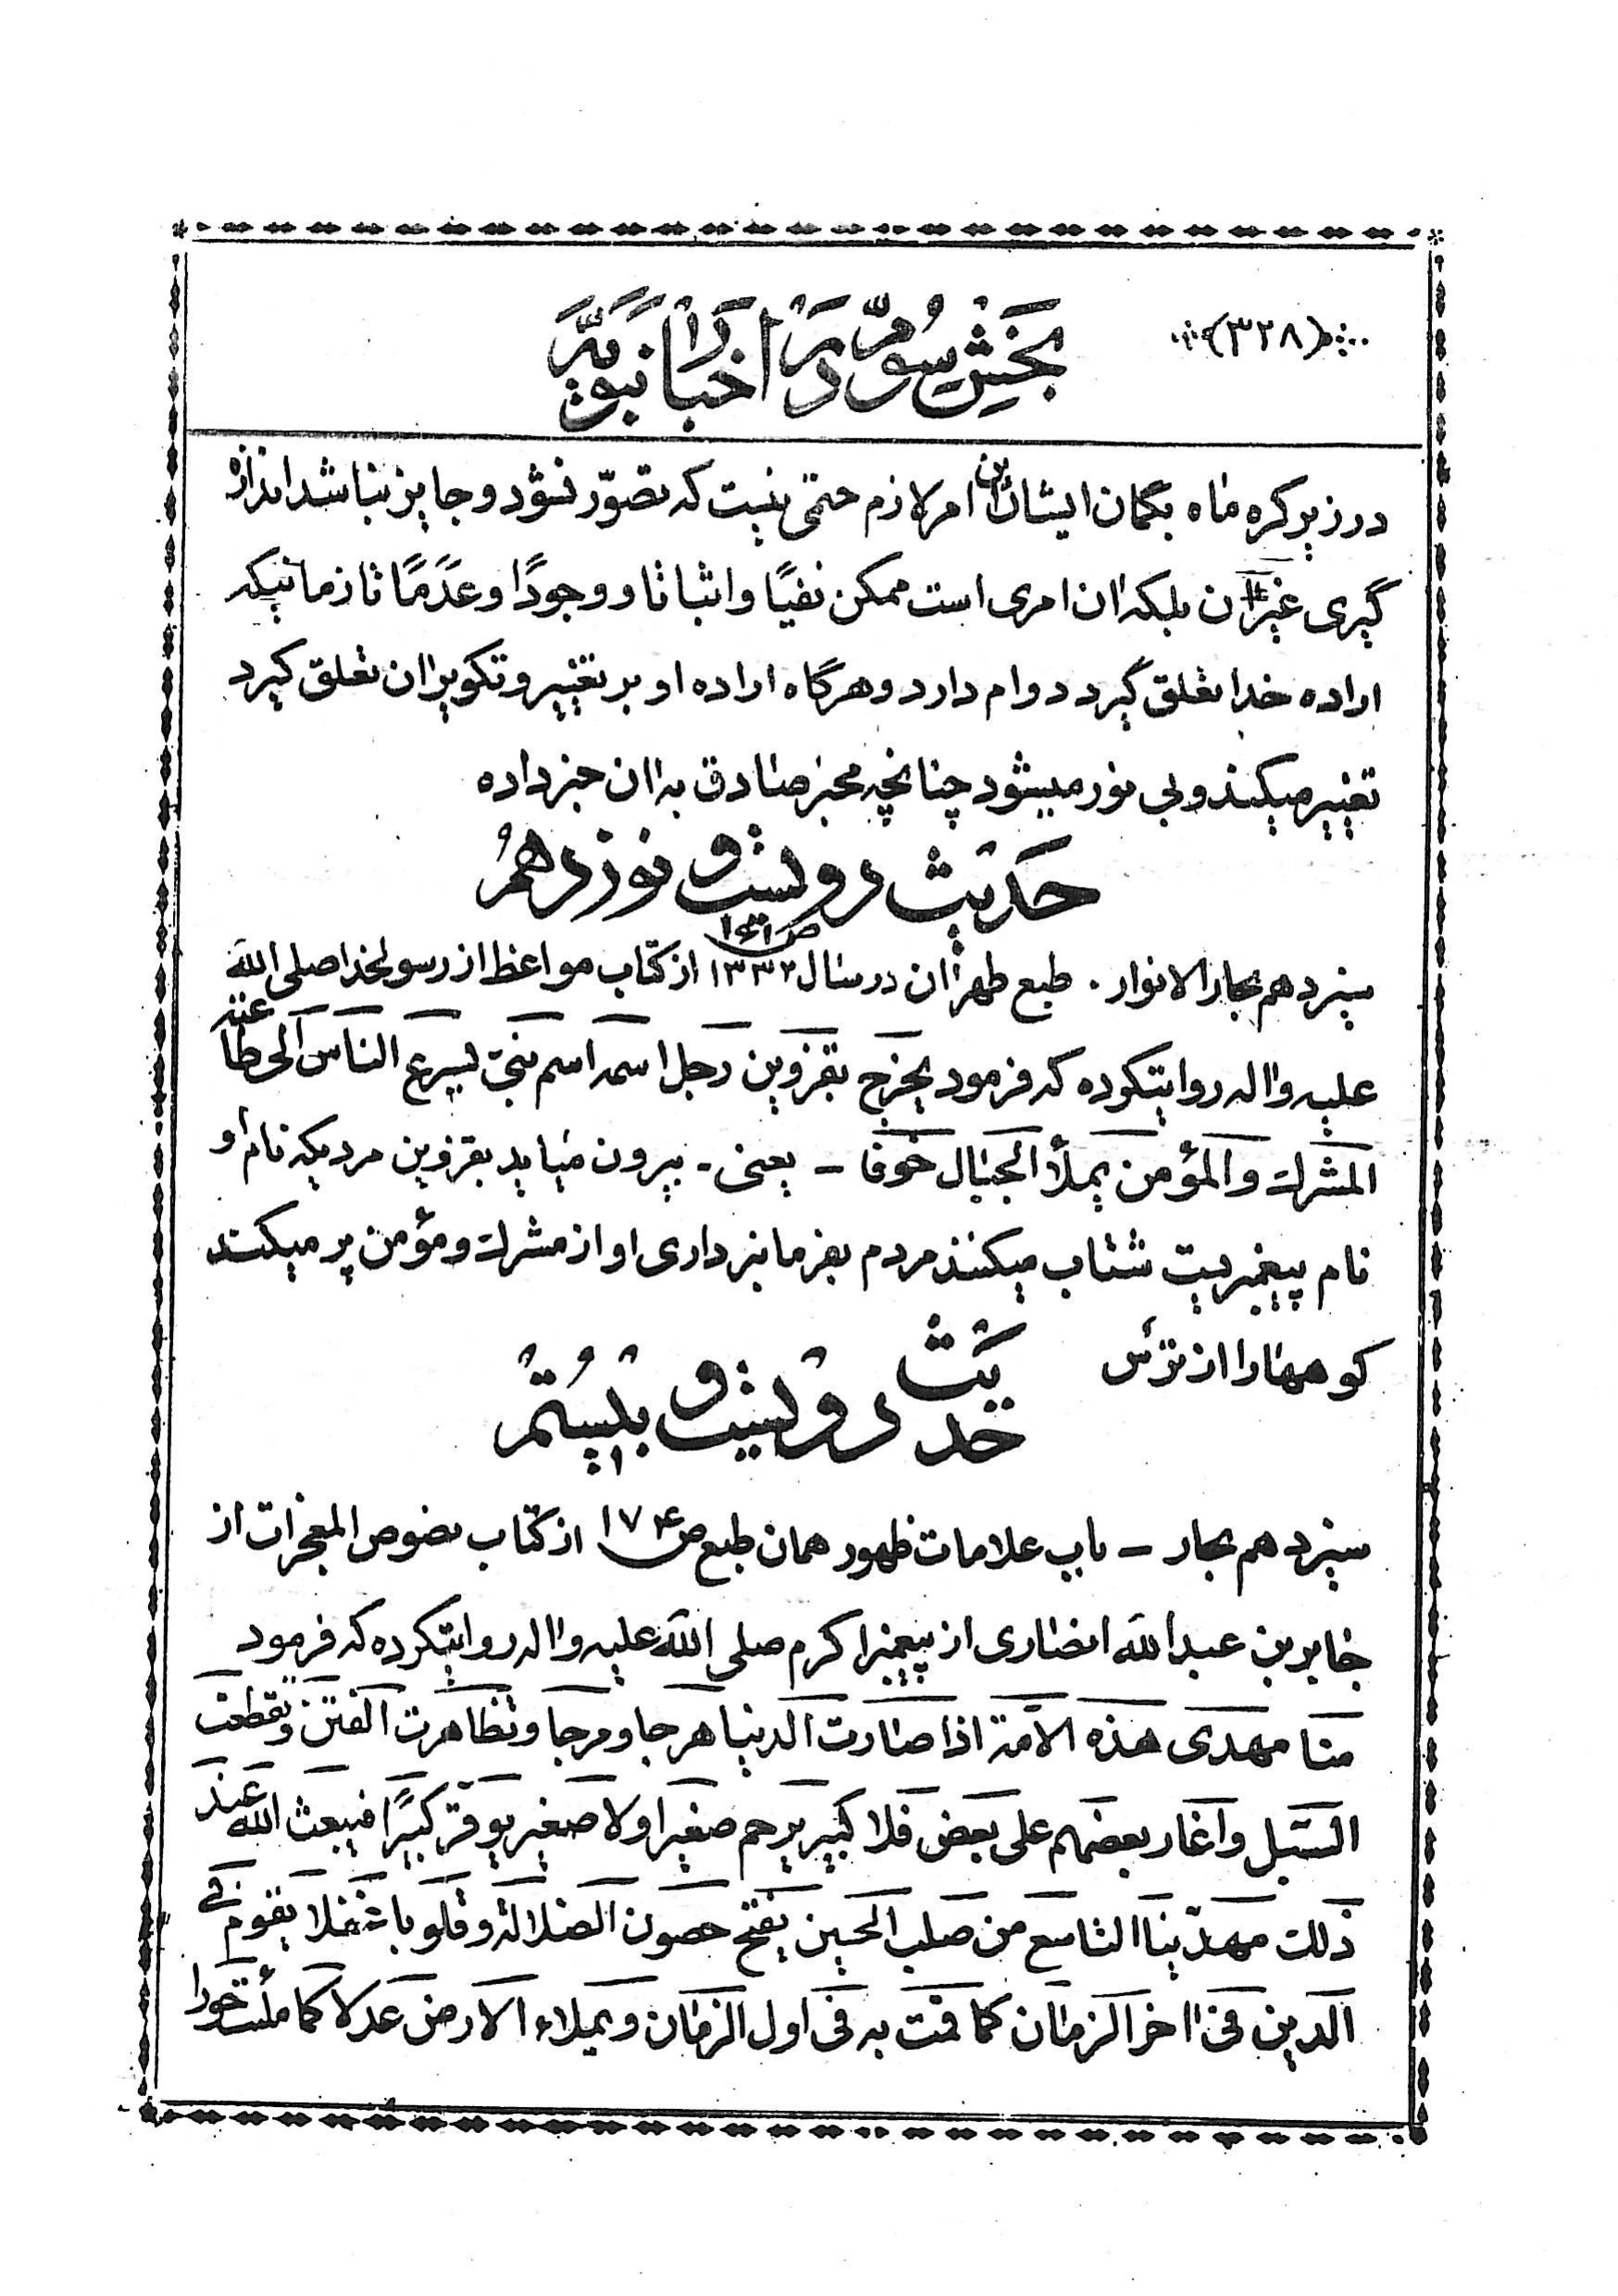 (۳۲۸)
بخش سوّم در اخبار نبویّه
در زیر کره ماه بگمان ایشان این امر لازم حتمی نیست که تصوّر نشود و جایز نباشد اندازه
گیری غیر ان بلکه ان امری است ممکن نفیًا و اثباتا و وجودًا و عدمًا تا زمانیکه
اراده خدا تعلق گیرد دوام دارد و هرگاه اراده او بر تغییر و تکویر ان تعلق گیرد
تغییر میکند و بی نور میشود چنانچه مخبر صادق به ان خبر داده
حدیث دویست و نوزدهم
سیزدهم بحار الانوار . طبع طهران در سال ۱۳۳۲ ص ۱۶۱ از کتاب مواعظ از رسولخدا صلی الله
علیه واله روایتکرده که فرمود یخرج بقزوین رجل اسمه اسم نبیّ یسرع الناس الی طاعته
المشرك والمؤمن یملأ الجبال خوفا – یعنی - بیرون میاید بقزوین مردیکه نام او
نام پیغمبریست شتاب میکنند مردم بفرمانبرداری او از مشرك و مؤمن پر میکند
کوهها را از ترس
حدیث دویست و بیستم
سیزدهم بحار – باب علامات ظهور همان طبع ص ۱۷۴ از کتاب نصوص المعجزات از
جابر بن عبدالله انصاری از پیغمبر اکرم صلی الله علیه واله روایتکرده که فرمود
منا مهدی هذه الامّة اذا صارت الدنیا هرجا ومرجا وتظاهرت الفتن وتقطعت
السّبل واغار بعضهم علی بعض فلا کبیر یرحم صغیرا ولا صغیر یوقّر کبیرًا فیبعث الله عند
ذلك مهدّینا التاسع من صلب الحسین یفتح حصون الضلالة وقلوبا غفلا یقوم فی
الدین فی اخر الزمان کما قمت به فی اول الزمان ویملاء الارض عدلا کما ملئت جورا